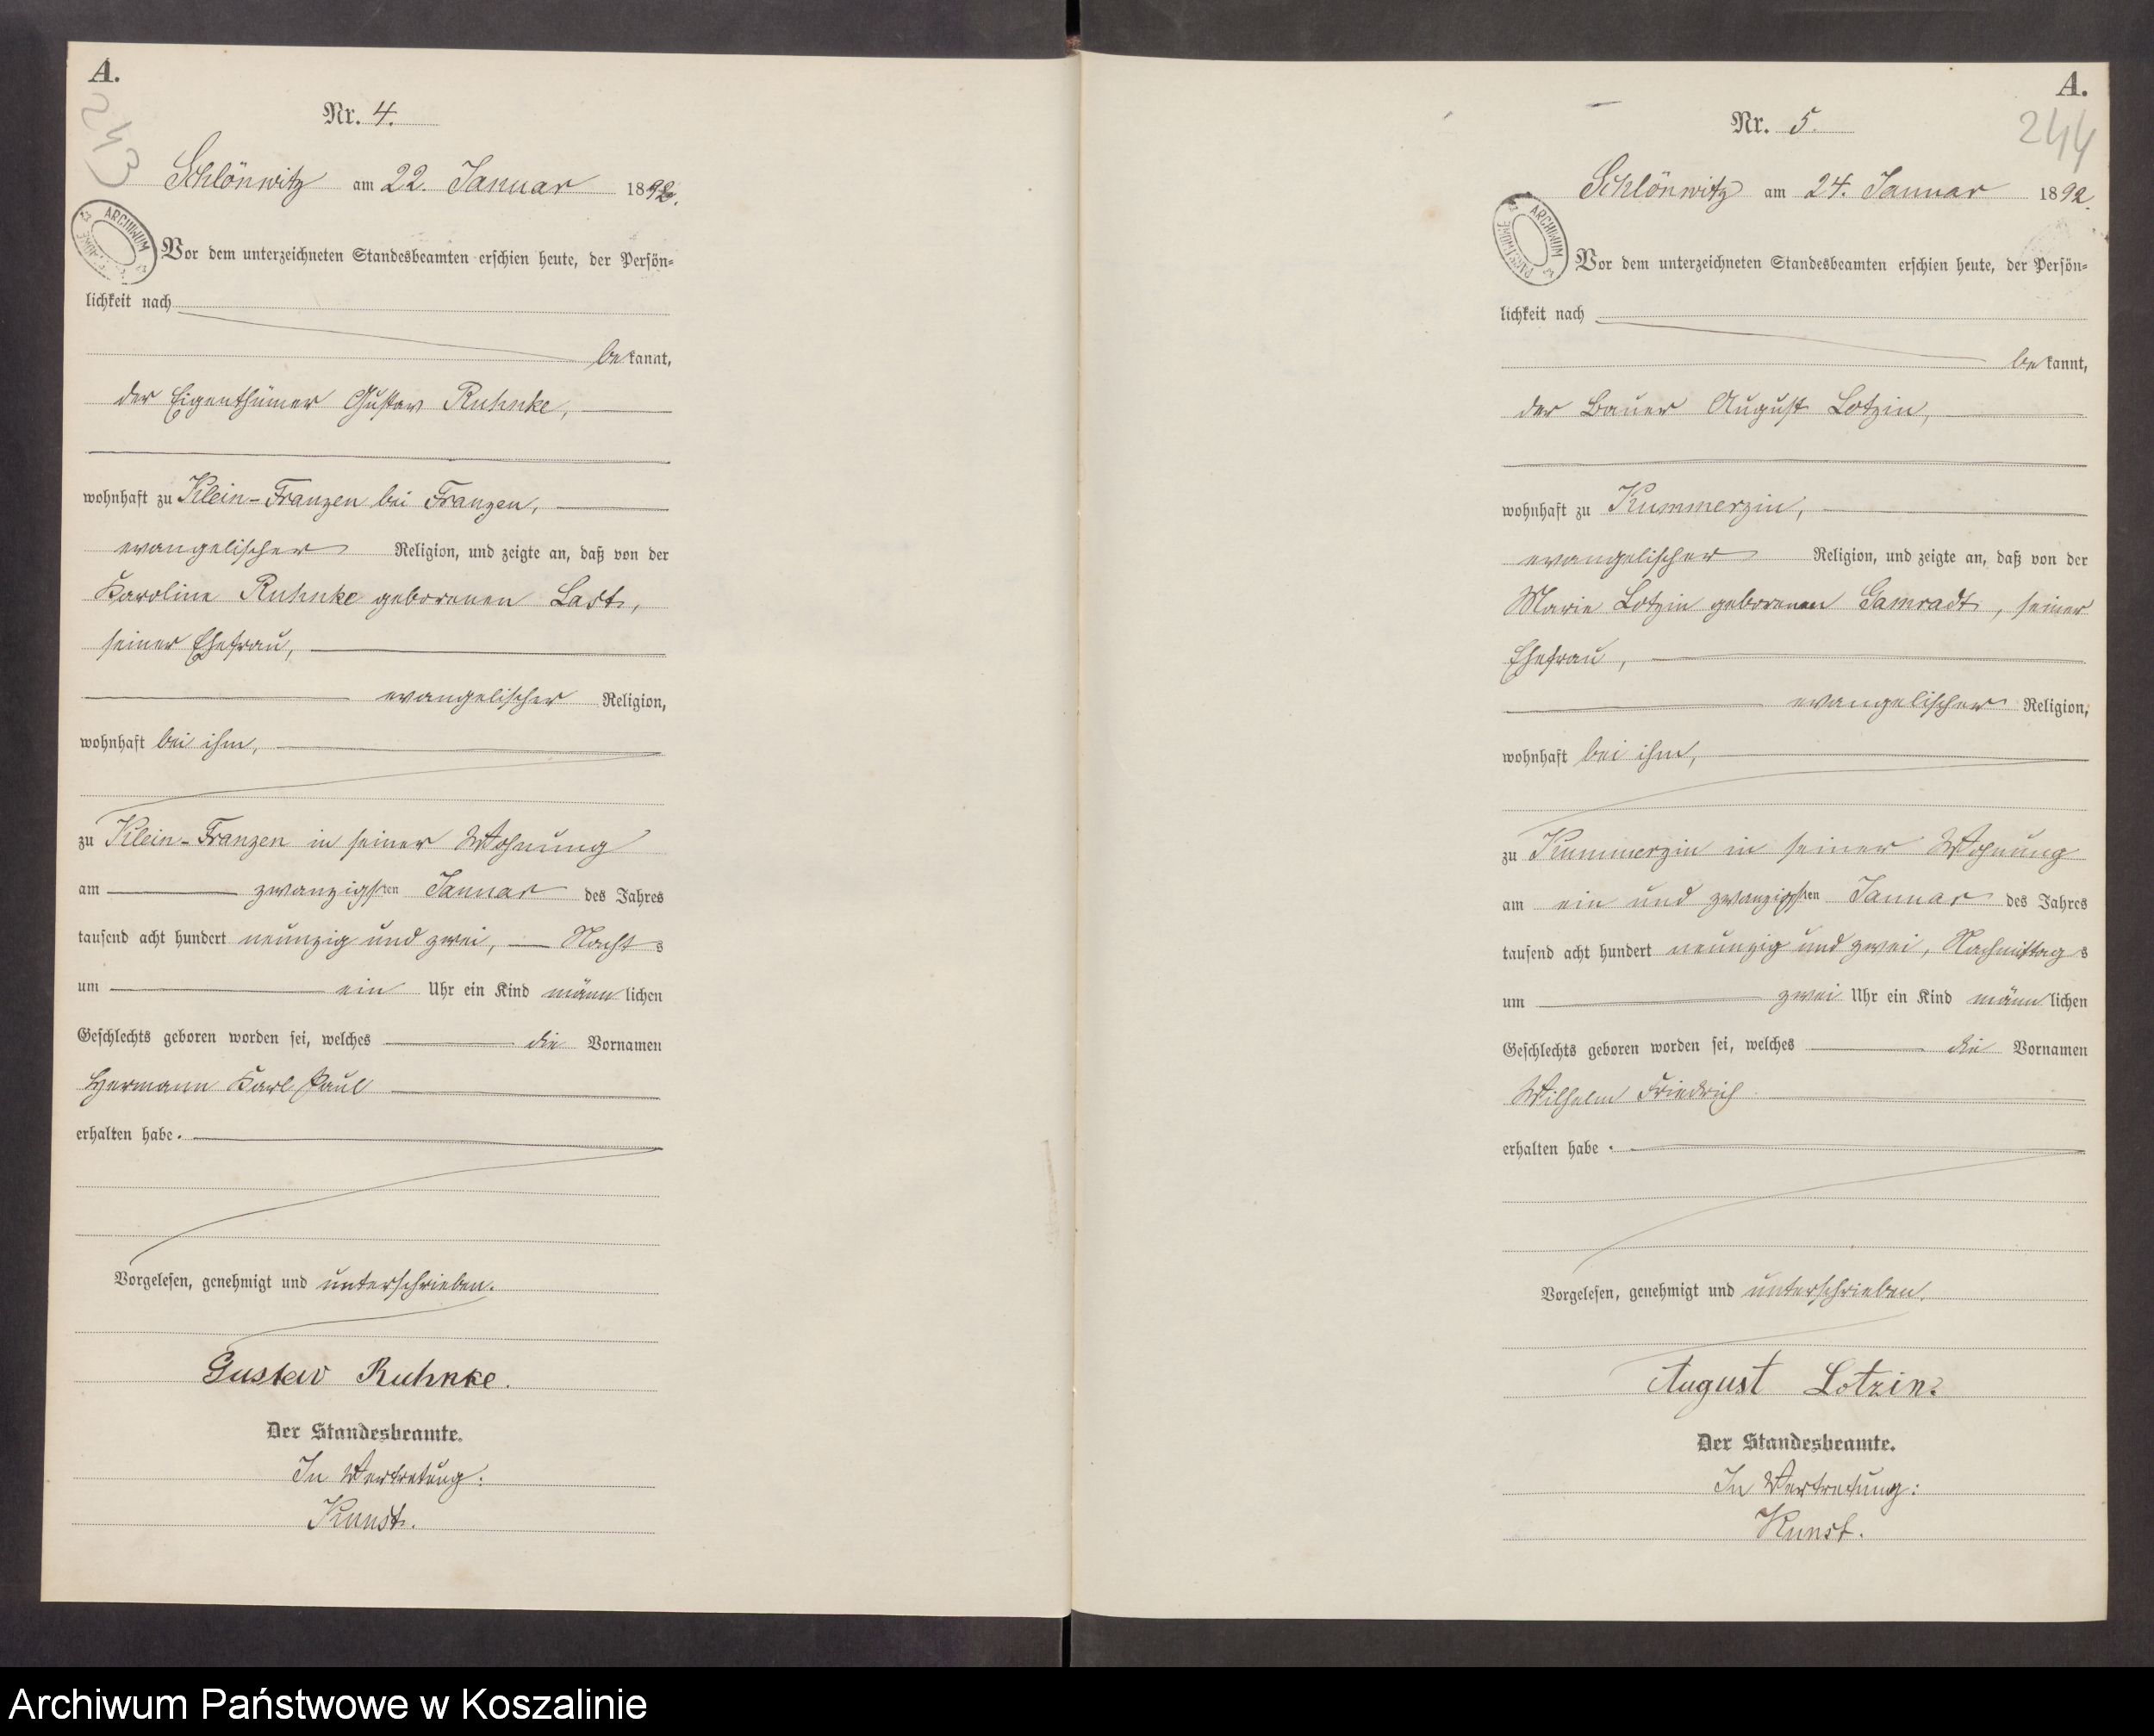 A.
243
Nr. 4.
Schlönwitz am 22. Januar 1892.
ARCHIWUM
Vor dem unterzeichneten Standesbeamten erschien heute, der Persön-
lichkeit nach
bekannt,
der Eigenthümer Gustav Ruhnke,
wohnhaft zu Klein-Franzen bei Franzen,
evangelischer Religion, und zeigte an, daß von der
Karoline Ruhnke geborenen Last,
seiner Ehefrau,
evangelischer Religion,
wohnhaft bei ihm,
zu Klein-Franzen in seiner Wohnung
am zwanzigsten Januar des Jahres
tausend acht hundert neunzig und zwei, Nachts
um ein Uhr ein Kind männlichen
Geschlechts geboren worden sei, welches die Vornamen
Hermann Karl Paul
erhalten habe.
Vorgelesen, genehmigt und unterschrieben.
Gustav Ruhnke.
Der Standesbeamte.
In Vertretung:
Kunst.
A.
244
Nr. 5.
Schlönwitz am 24. Januar 1892.
ARCHIWUM PAŃSTWOWE
Vor dem unterzeichneten Standesbeamten erschien heute, der Persön-
lichkeit nach
bekannt,
der Bauer August Lotzin,
wohnhaft zu Kummerzin,
evangelischer Religion, und zeigte an, daß von der
Marie Lotzin geborenen Gamradt, seiner
Ehefrau,
evangelischer Religion,
wohnhaft bei ihm,
zu Kummerzin in seiner Wohnung
am ein und zwanzigsten Januar des Jahres
tausend acht hundert neunzig und zwei, Nachmittags
um zwei Uhr ein Kind männlichen
Geschlechts geboren worden sei, welches die Vornamen
Wilhelm Friedrich
erhalten habe.
Vorgelesen, genehmigt und unterschrieben.
August Lotzin.
Der Standesbeamte.
In Vertretung:
Kunst.
Archiwum Państwowe w Koszalinie